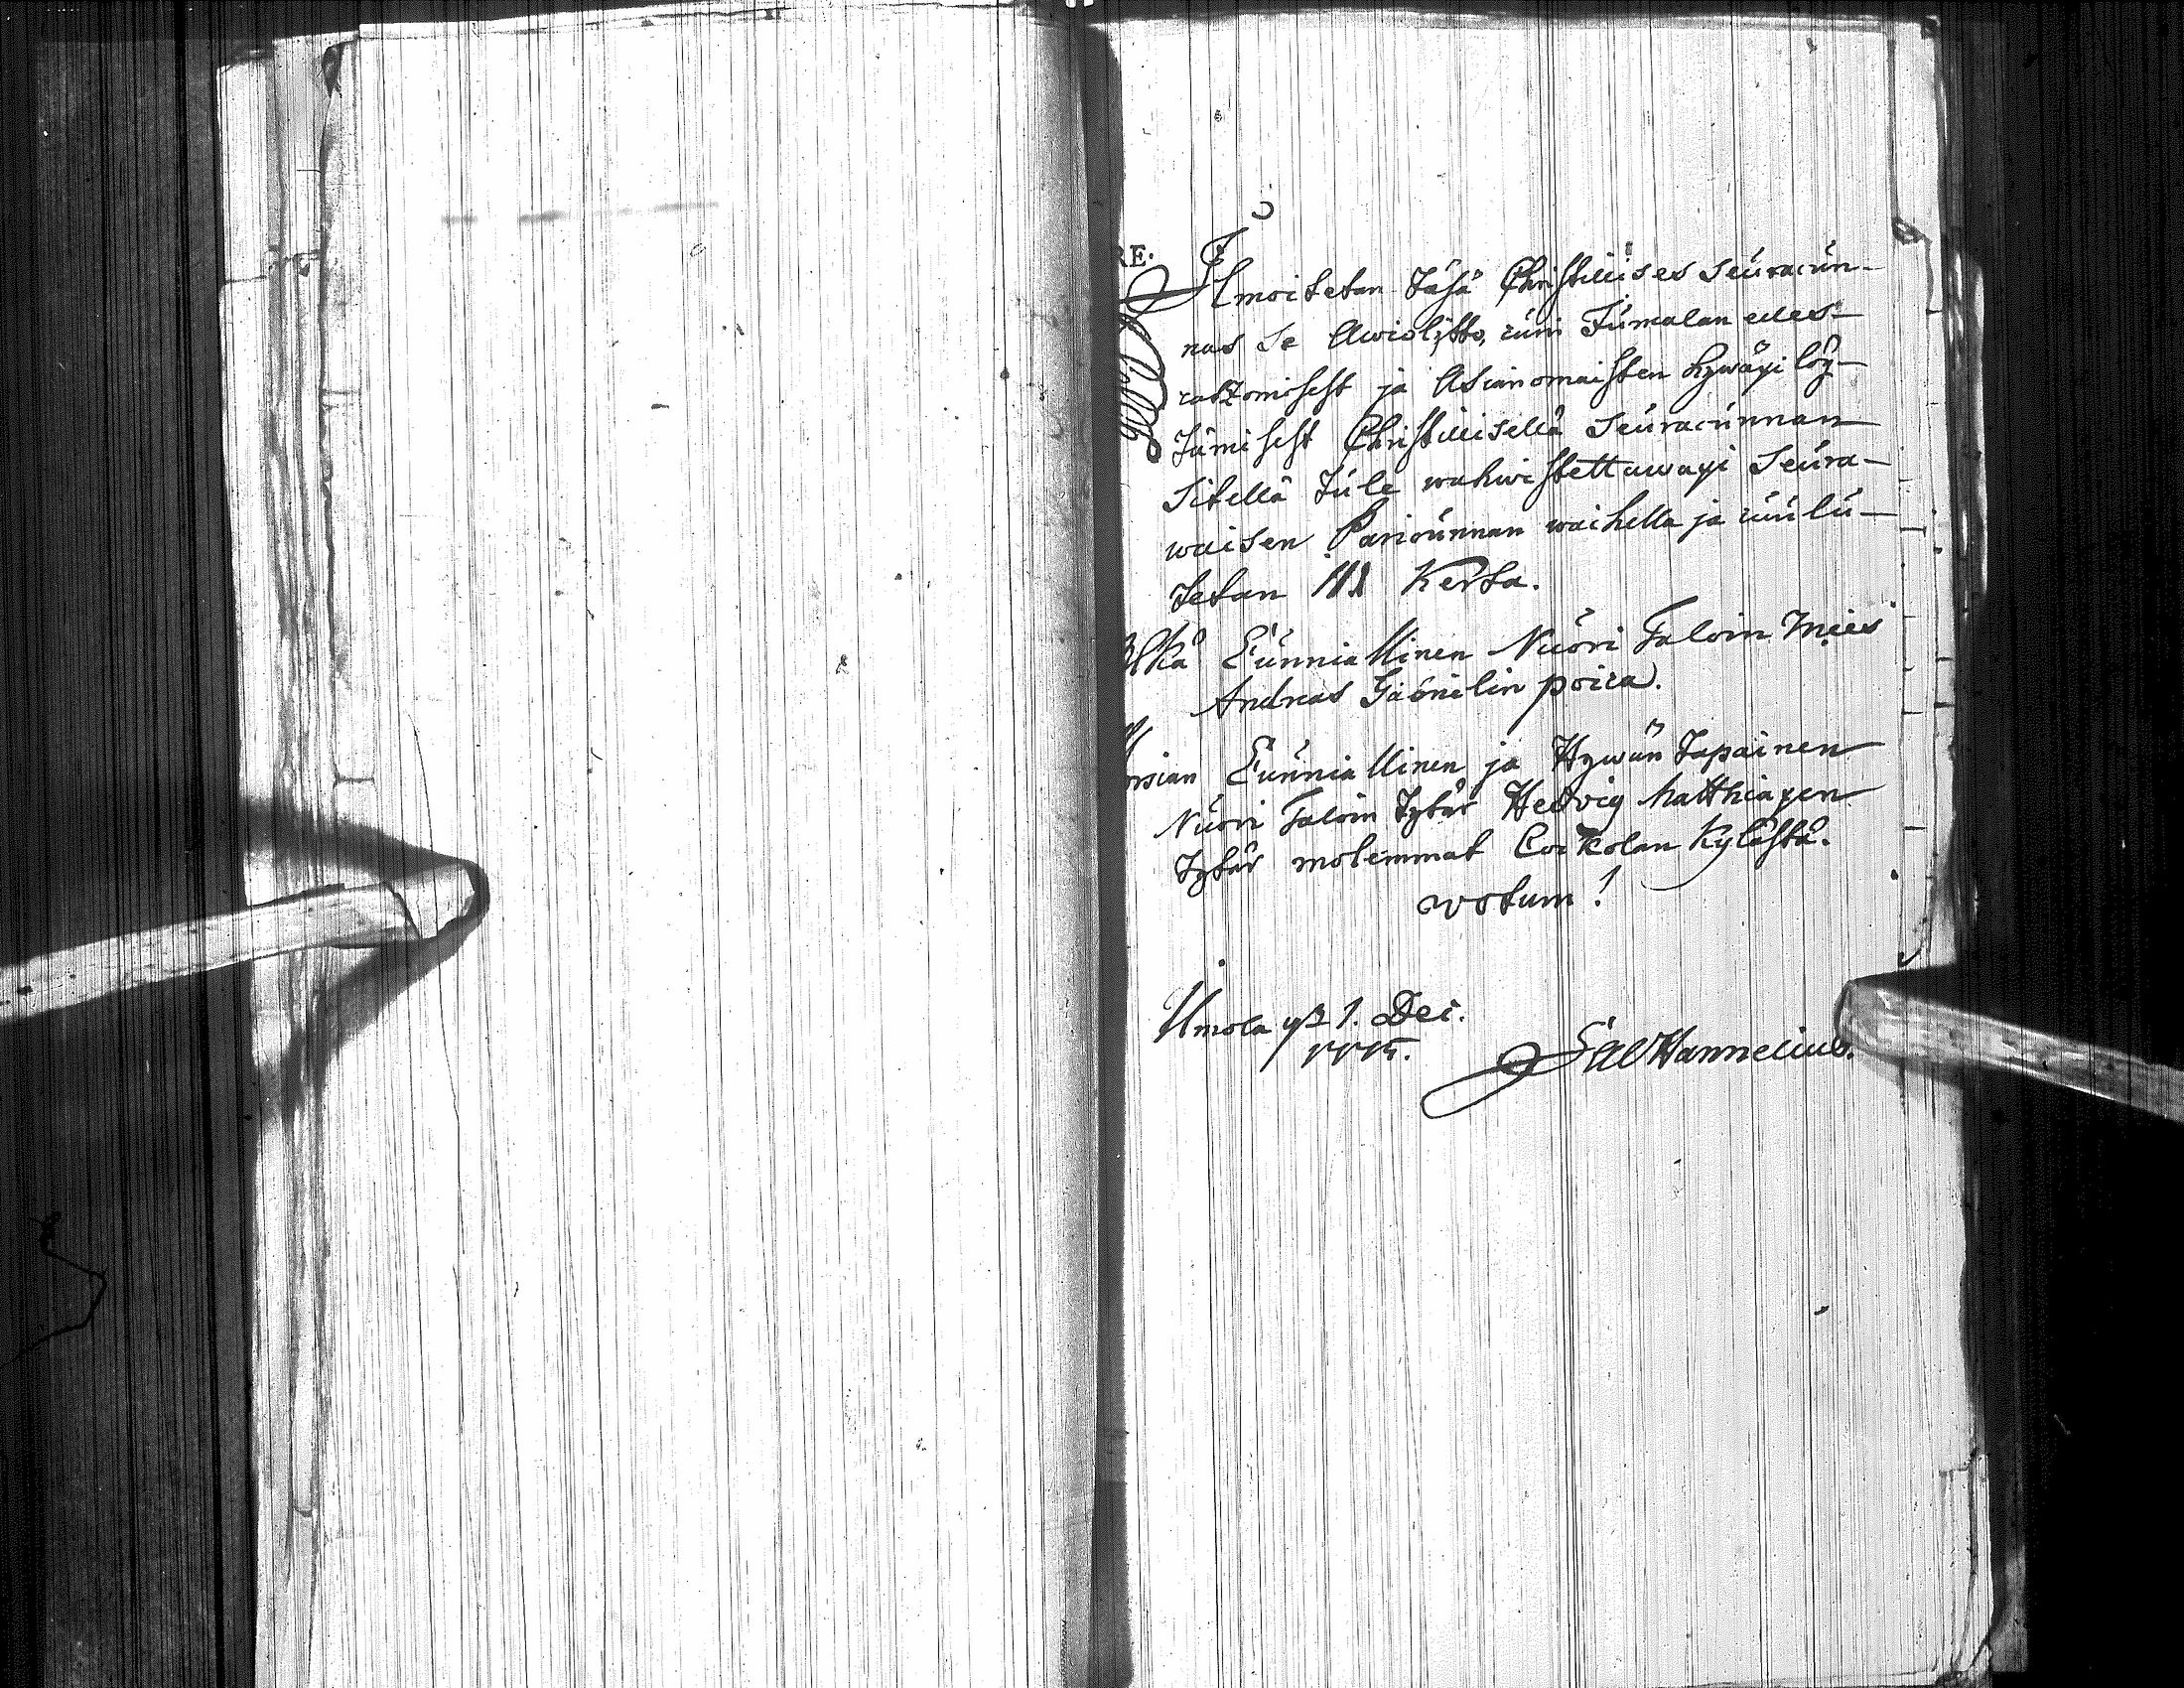 RE.
Ilmoitetan täsä Christilises Seuracun-
nas se Awioljtto, cuin Jumalan edes-
catzomisest ja Asianomaisten hywäxi löy-
tämisest Christillisellä Seuracunnan
Sitellä tule wahwistettawaxi Seura-
waisen Pariounnan waihella ja cuulu-
tetan III Kerta.
Ylkä Cunniallinen Nuori Taloin Mies
Andreas Gabrielin poica.
Morsian Cunniallinen ja Hywän tapainen
Nuori Taloin tytär Hedvig Matthiaxen
tytär molemmat Cockolan Kylästä.
votum!
Ulmola 1. Dec.
Hannelius.